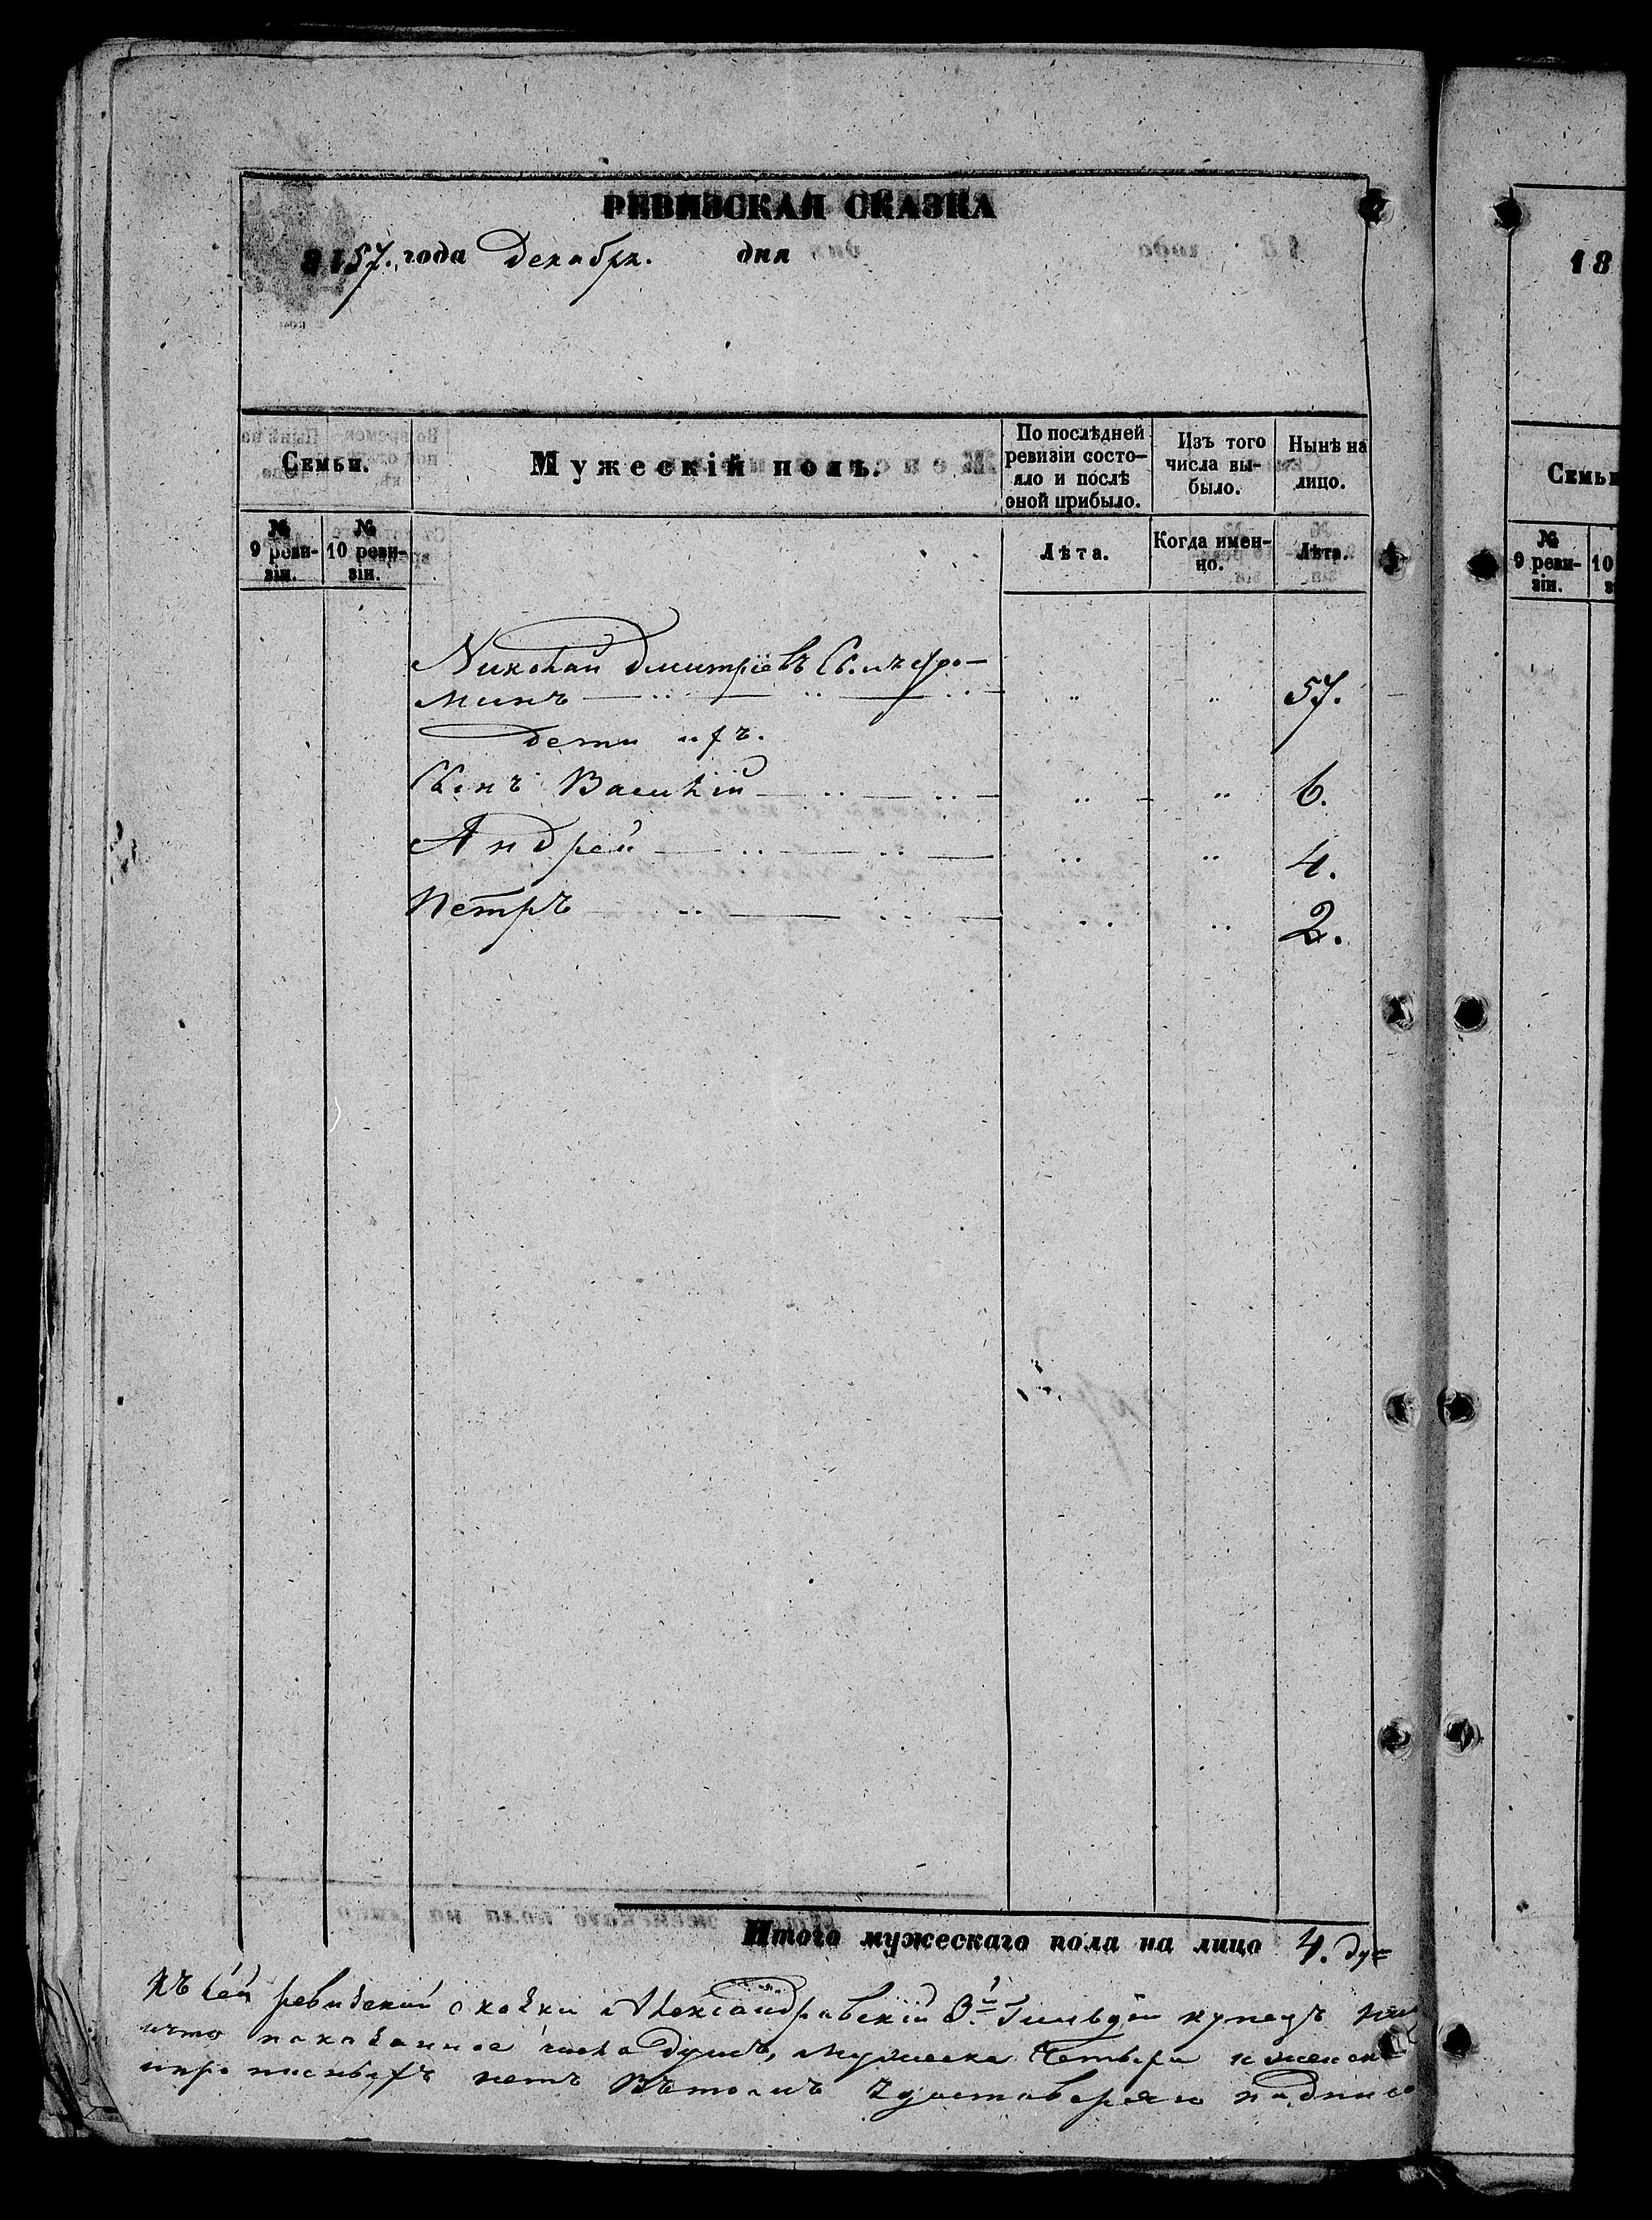 РЕВИЗСКАЯ СКАЗКА
1857. года Декабря. дня
Семьи.
Мужескій полъ.
По послѣдней ревизіи состо-
яло и послѣ
оной прибыло.
Изъ того
числа вы-
было.
Нынѣ на
лицо.
№
9 реви-
зіи.
№
10 реви-
зіи.
Лѣта.
Когда имен-
но.
Лѣта.
Николай Дмитріевъ
минъ 57.
Дети ихъ.
Сынъ Василій 6.
Андрей 4.
Петръ 2.
Итого мужескаго пола на лицо 4. ду=
Къ сей ревизской сказки Александровскій 3й Гильдіи купецъ
что показанное число душъ, мужеска Четыри и женск
прописныхъ нетъ Вътомъ удостоверяю подпи
18
Семьи
№
9 реви-
зіи.
10